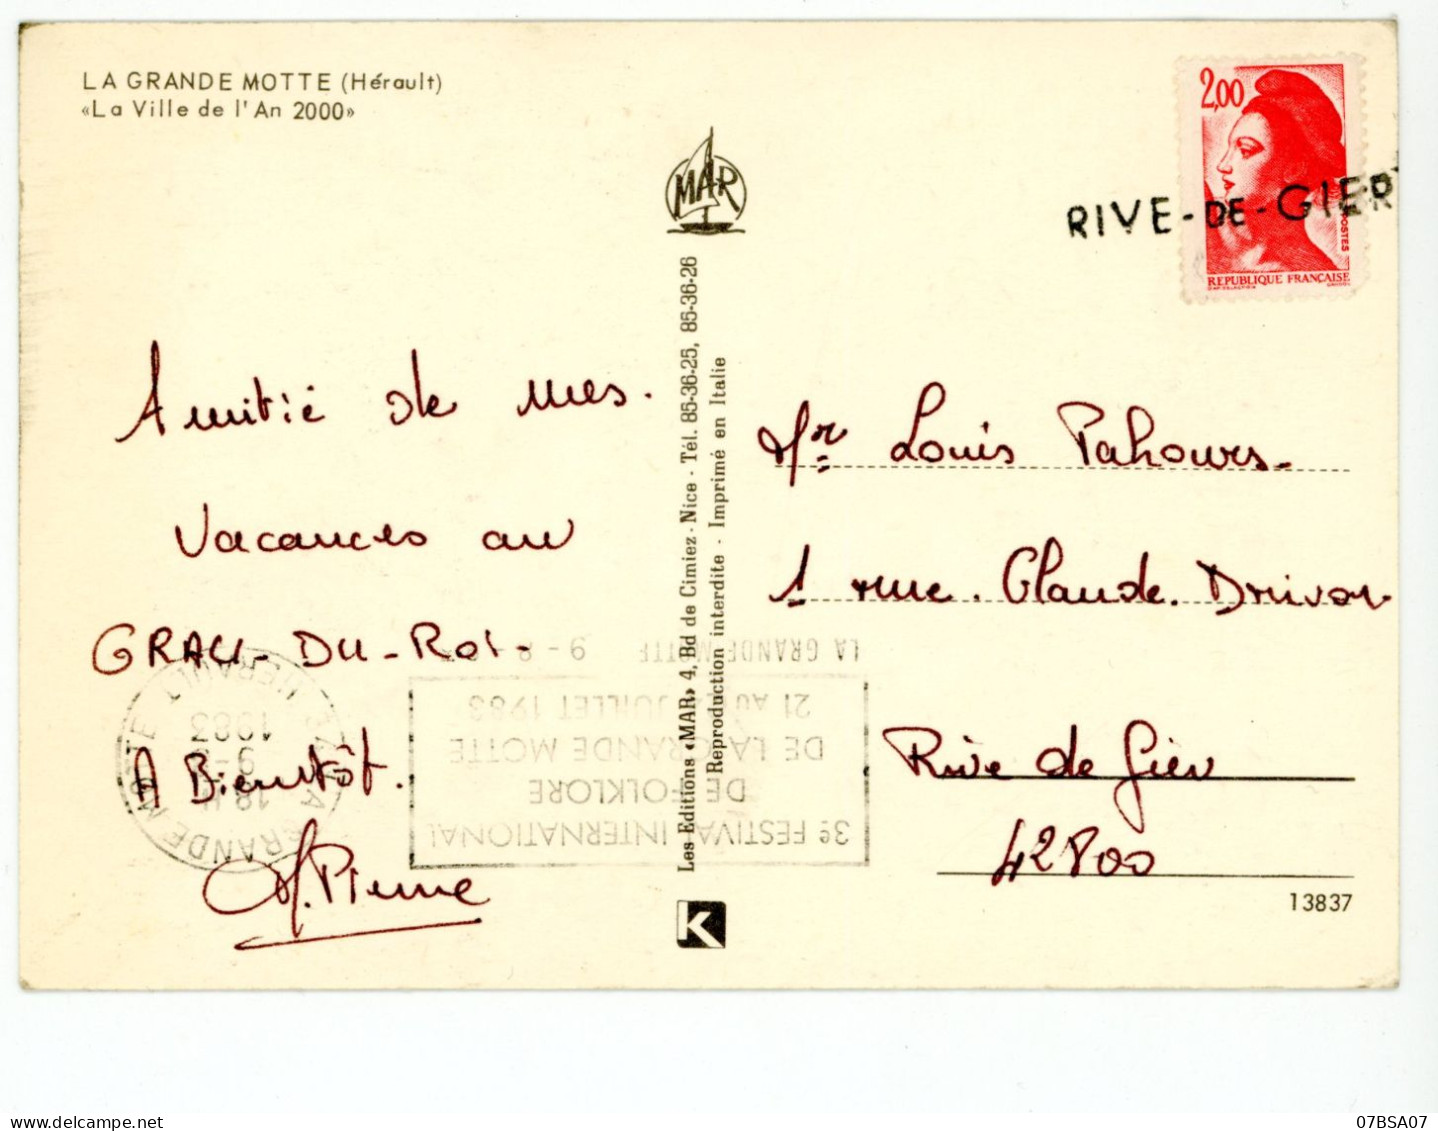 LA GRANDE MOTTE (Hérault)
«La Ville de l'An 2000»
2,00
POSTES
REPUBLIQUE FRANÇAISE
RIVE-DE-GIER
MAR
Amitié de mes.
Vacances au
GRAU-DU-ROI-
A Bientôt.
Les Editions «MAR» 4, Bd de Cimiez - Nice - Tél. 85-36-25, 85-36-26
Reproduction interdite - Imprimé en Italie
K
Mr Louis Pahours
1 rue. Claude. Drivon
Rive de Gier
42800
13837
LA GRANDE MOTTE
HERAULT
18 H
9-8
1983
3e FESTIVAL INTERNATIONAL
DE FOLKLORE
DE LA GRANDE MOTTE
21 AU JUILLET 1983
LA GRANDE MOTTE 9-8
07BSA07